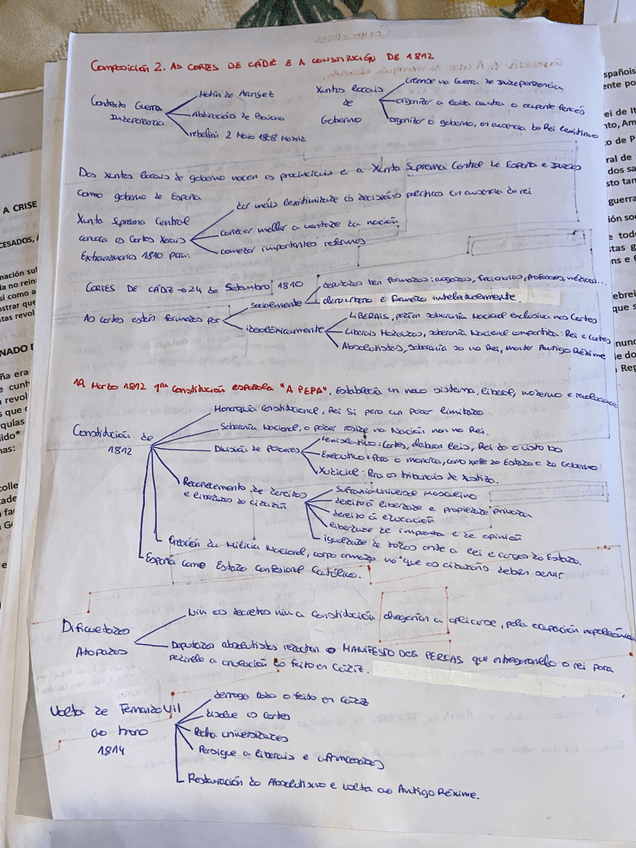 Composición 2. AS CORTES DE CÁDIZ E A CONSTITUCIÓN DE 1812
Contexto Guerra Independencia
Motín de Aranjuez
Abdicación de Baiona
rebelión 2 Maio 1808 Madrid
Xuntas locais de Goberno
organizar a loita contra o ocupante francés
organizar o goberno, en ausencia do Rei lexítimo
Das xuntas locais de goberno nacen as provinciais e a Xunta Suprema Central de España e
como goberno de España
Xunta Suprema Central
convoca as Cortes Xerais
Extraordinarias 1810 para:
dar máis lexitimidade ás decisións políticas en ausencia do rei
coñecer mellor a vontade da nación
comezar importantes reformas
CORTES DE CÁDIZ → 24 de Setembro 1810
As cortes están formadas por
socialmente
deputados ben formados: avogados, funcionarios, profesores, médicos...
clero urbano e formado intelectualmente.
ideoloxicamente
LIBERAIS, pedían soberanía Nacional exclusiva nas Cortes
Liberais Moderados, soberanía Nacional compartida: Rei e Cortes
Absolutistas, soberanía so no Rei, manter Antigo Réxime
19 Marzo 1812 1ra Constitución española "A PEPA". Establecía un novo sistema, liberal, moderno e
Constitución de 1812
Monarquía Constitucional, Rei si pero cun poder limitado
Soberanía Nacional, o poder reside na Nación non no Rei.
División de Poderes
Lexislativo: Cortes, elaboran leis, Rei da o visto bo
Executivo: Para o monarca, como xefe do Estado e do Goberno
Xudicial: Para os tribunais de xustiza.
Recoñecemento de dereitos
e liberdades do cidadán
Sufraxio Universal Masculino
dereito á liberdade e propiedade privada
dereito á educación
liberdade de imprenta e de opinión
igualdade de todos ante a lei e cargos do Estado.
Creación da Milicia Nacional, corpo armado no que os cidadáns deben servir
España como Estado Confesional Católico.
Dificultades
Atopadas
Nin os decretos nin a Constitución chegarían a aplicarse, pola ocupación napoleónica
Deputados absolutistas redactan o MANIFESTO DOS PERSAS que entregarallo o rei para
pedirlle a anulación do feito en Cádiz.
Volta de Fernando VII
ao trono
1814
derroga todo o feito en Cádiz
disolve as Cortes
Pecha universidades
Persegue a liberais e afrancesados
Restauración do Absolutismo e volta ao Antigo Réxime.